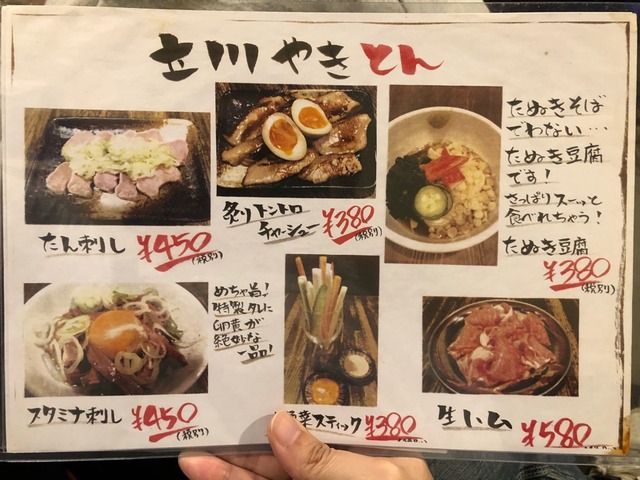 立川やきとん
たん刺し ¥450
(税別)
炙りトントロ
チャーシュー ¥380
(税別)
たぬきそば
でわない…
たぬき豆腐
です!
さっぱりスーッと
食べれちゃう!
たぬき豆腐
¥380
(税別)
スタミナ刺し ¥450
(税別)
めちゃ旨!
特製タレに
卵黄が
絶妙な
一品!
菜スティック ¥380
生ハム ¥580